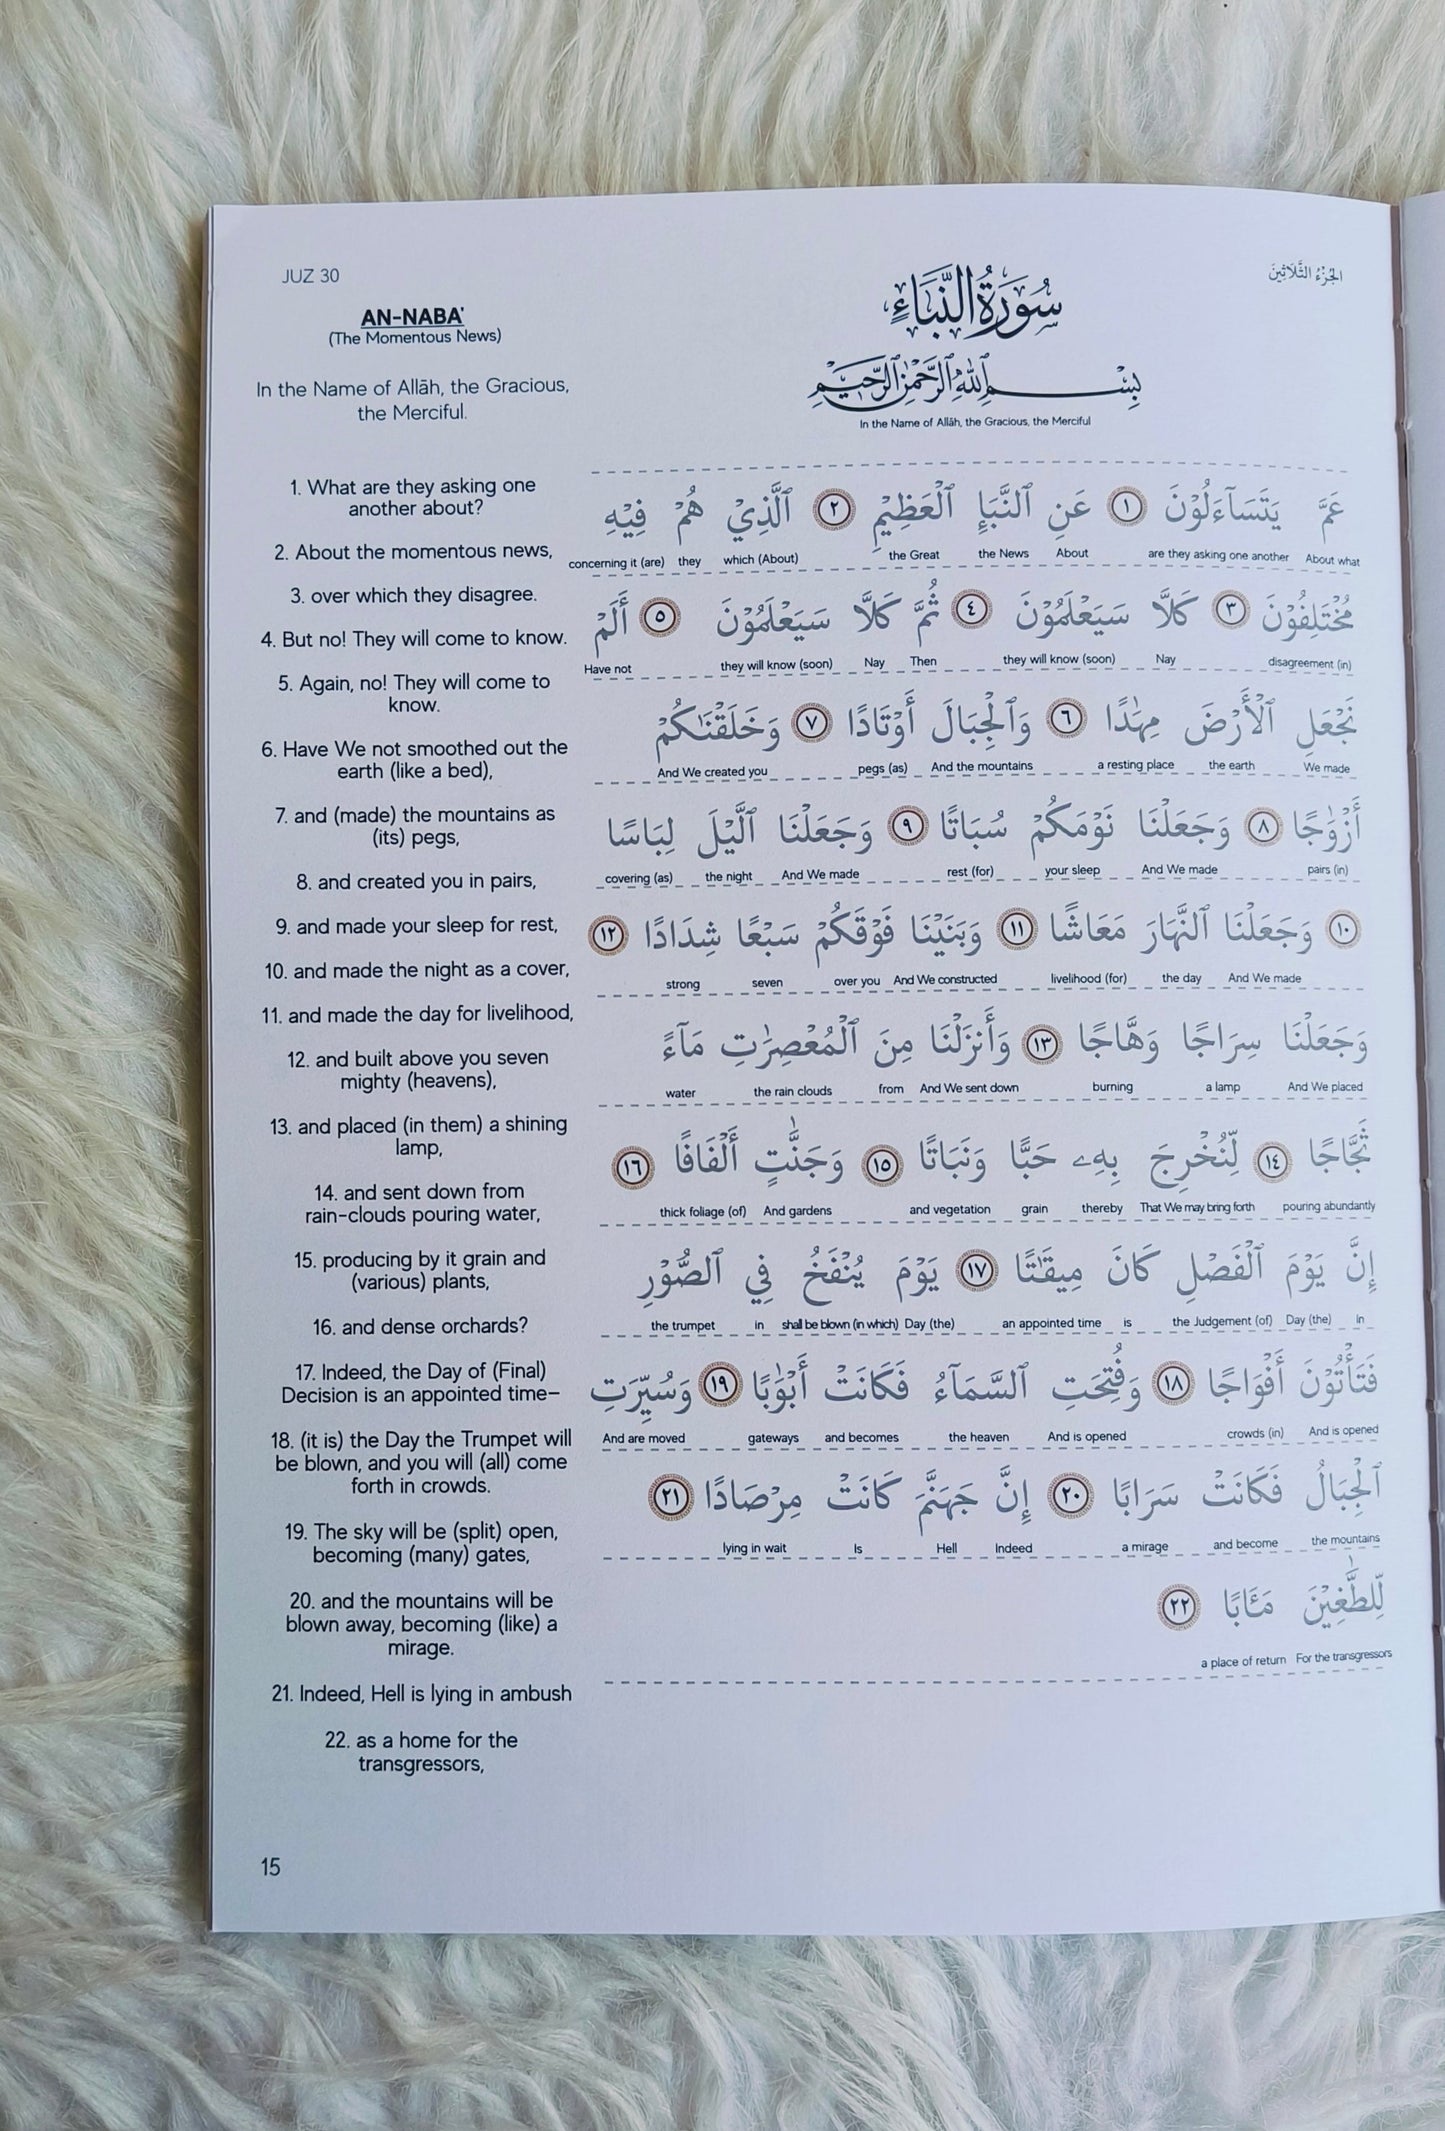 JUZ 30
الجُزْءُ الثَّلَاثِينَ
AN-NABA'
(The Momentous News)
In the Name of Allāh, the Gracious,
the Merciful.
1. What are they asking one
another about?
2. About the momentous news,
3. over which they disagree.
4. But no! They will come to know.
5. Again, no! They will come to
know.
6. Have We not smoothed out the
earth (like a bed),
7. and (made) the mountains as
(its) pegs,
8. and created you in pairs,
9. and made your sleep for rest,
10. and made the night as a cover,
11. and made the day for livelihood,
12. and built above you seven
mighty (heavens),
13. and placed (in them) a shining
lamp,
14. and sent down from
rain-clouds pouring water,
15. producing by it grain and
(various) plants,
16. and dense orchards?
17. Indeed, the Day of (Final)
Decision is an appointed time–
18. (it is) the Day the Trumpet will
be blown, and you will (all) come
forth in crowds.
19. The sky will be (split) open,
becoming (many) gates,
20. and the mountains will be
blown away, becoming (like) a
mirage.
21. Indeed, Hell is lying in ambush
22. as a home for the
transgressors,
سُورَةُ النَّبَاءِ
بِسْمِ ٱللَّهِ ٱلرَّحْمَٰنِ ٱلرَّحِيمِ
In the Name of Allāh, the Gracious, the Merciful
عَمَّ يَتَسَآءَلُوْنَ ١ عَنِ ٱلنَّبَإِ ٱلْعَظِيْمِ ٢ ٱلَّذِيْ هُمْ فِيْهِ
concerning it (are) they which (About) the Great the News About are they asking one another About what
مُخْتَلِفُوْنَ ٣ كَلَّا سَيَعْلَمُوْنَ ٤ ثُمَّ كَلَّا سَيَعْلَمُوْنَ ٥ أَلَمْ
Have not they will know (soon) Nay Then they will know (soon) Nay disagreement (in)
نَجْعَلِ ٱلْأَرْضَ مِهَٰدًا ٦ وَٱلْجِبَالَ أَوْتَادًا ٧ وَخَلَقْنَٰكُمْ
And We created you pegs (as) And the mountains a resting place the earth We made
أَزْوَٰجًا ٨ وَجَعَلْنَا نَوْمَكُمْ سُبَاتًا ٩ وَجَعَلْنَا ٱلَّيْلَ لِبَاسًا
covering (as) the night And We made rest (for) your sleep And We made pairs (in)
١٠ وَجَعَلْنَا ٱلنَّهَارَ مَعَاشًا ١١ وَبَنَيْنَا فَوْقَكُمْ سَبْعًا شِدَادًا ١٢
strong seven over you And We constructed livelihood (for) the day And We made
وَجَعَلْنَا سِرَاجًا وَهَّاجًا ١٣ وَأَنزَلْنَا مِنَ ٱلْمُعْصِرَٰتِ مَآءً
water the rain clouds from And We sent down burning a lamp And We placed
ثَجَّاجًا ١٤ لِّنُخْرِجَ بِهِۦ حَبًّا وَنَبَاتًا ١٥ وَجَنَّٰتٍ أَلْفَافًا ١٦
thick foliage (of) And gardens and vegetation grain thereby That We may bring forth pouring abundantly
إِنَّ يَوْمَ ٱلْفَصْلِ كَانَ مِيقَٰتًا ١٧ يَوْمَ يُنْفَخُ فِي ٱلصُّوْرِ
the trumpet in shall be blown (in which) Day (the) an appointed time is the Judgement (of) Day (the) in
فَتَأْتُوْنَ أَفْوَاجًا ١٨ وَفُتِحَتِ ٱلسَّمَآءُ فَكَانَتْ أَبْوَٰبًا ١٩ وَسُيِّرَتِ
And are moved gateways and becomes the heaven And is opened crowds (in) And is opened
ٱلْجِبَالُ فَكَانَتْ سَرَابًا ٢٠ إِنَّ جَهَنَّمَ كَانَتْ مِرْصَادًا ٢١
lying in wait Is Hell Indeed a mirage and become the mountains
لِّلطَّٰغِيْنَ مَـَٔابًا ٢٢
a place of return For the transgressors
15